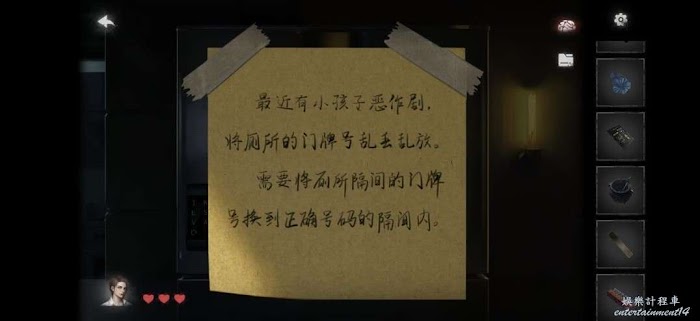 最近有小孩子恶作剧,
将厕所的门牌号乱丢乱放。
需要将厕所隔间的门牌
号换到正确号码的隔间内。
娛樂計程車
entertainment14